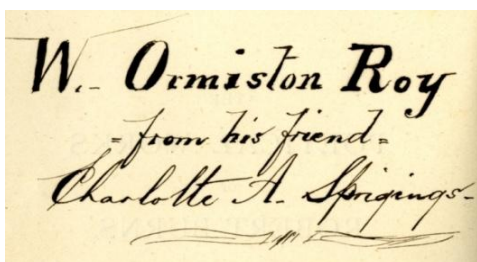 W. Ormiston Roy
= from his friend =
Charlotte A. Sprigings